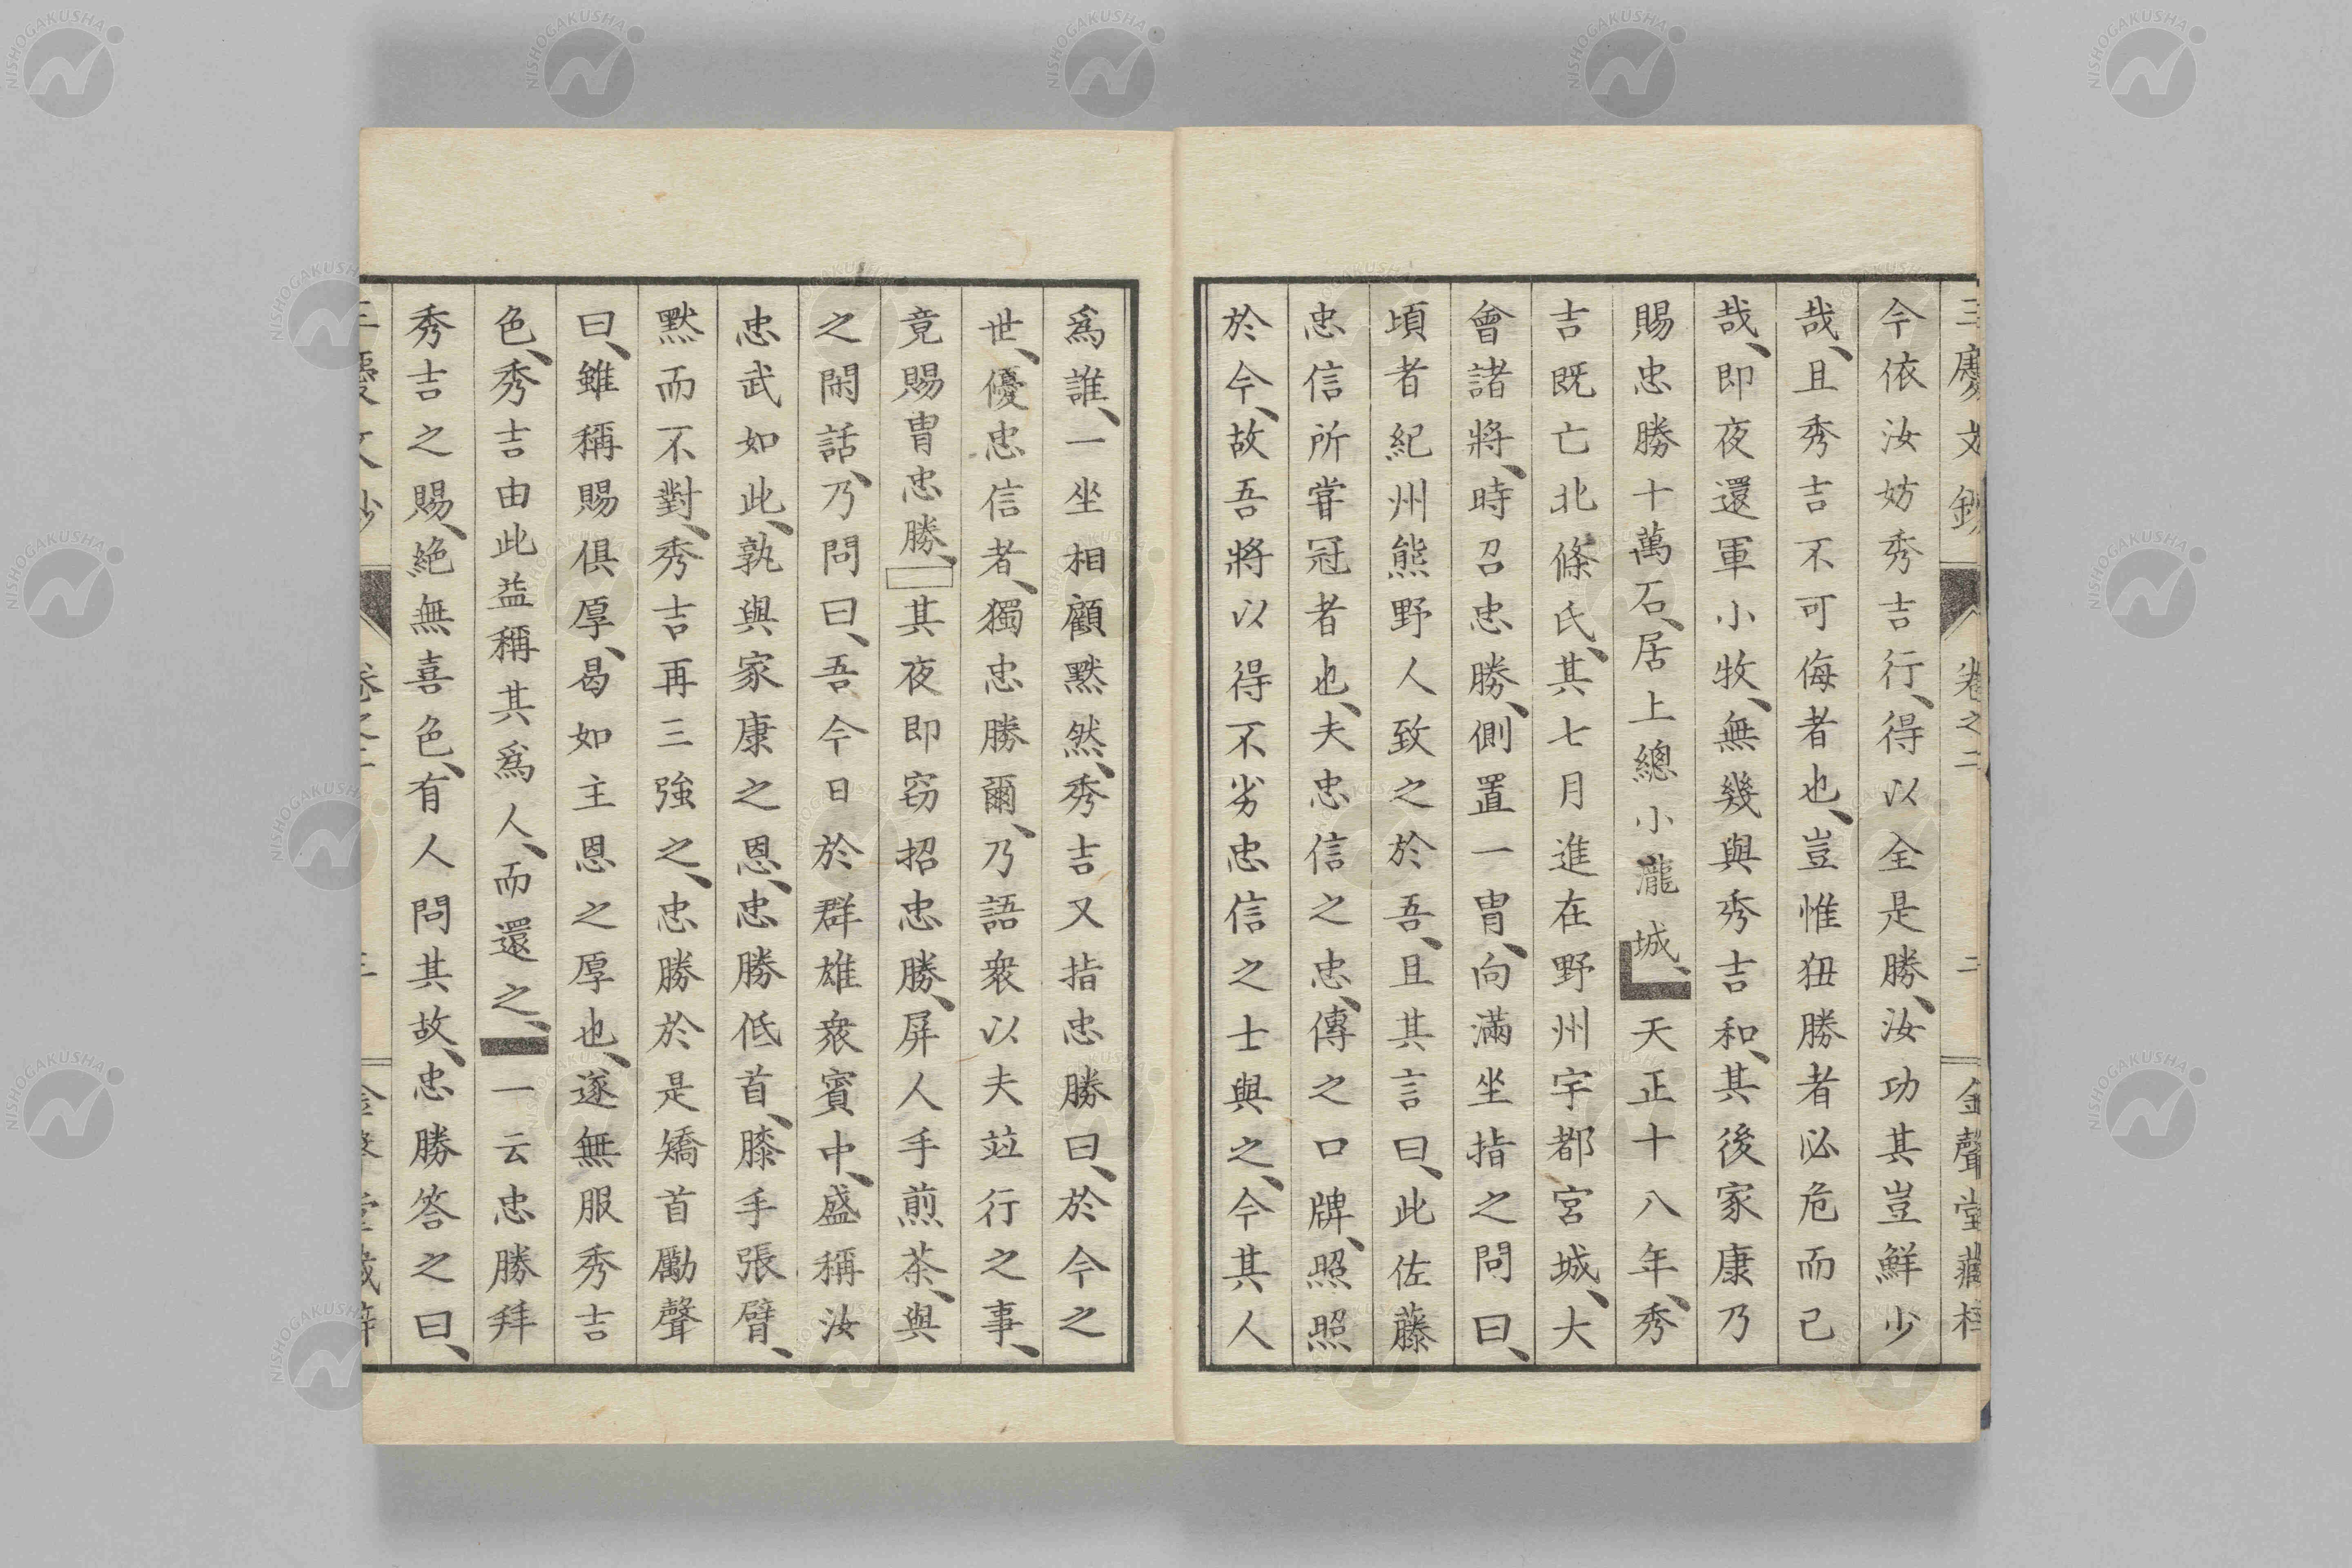 今依汝妨秀吉行、得以全是勝、汝功其豈鮮少
哉、且秀吉不可侮者也、豈惟狃勝者必危而已
哉、即夜還軍小牧、無幾與秀吉和、其後家康乃
賜忠勝十萬石、居上總小瀧城、天正十八年、秀
吉既亡北條氏、其七月進在野州宇都宮城、大
會諸將、時召忠勝、側置一冑、向滿坐指之問曰、
頃者紀州熊野人致之於吾、且其言曰、此佐藤
忠信所甞冠者也、夫忠信之忠、傳之口牌、照照
於今、故吾將以得不劣忠信之士與之、今其人
爲誰、一坐相顧默然、秀吉又指忠勝曰、於今之
世、優忠信者、獨忠勝爾、乃語衆以夫竝行之事、
竟賜冑忠勝、其夜即窃招忠勝、屏人手煎茶、與
之閑話、乃問曰、吾今日於群雄衆賓中、盛稱汝
忠武如此、孰與家康之恩、忠勝低首、膝手張臂、
默而不對、秀吉再三強之、忠勝於是矯首勵聲
曰、雖稱賜俱厚、曷如主恩之厚也、遂無服秀吉
色、秀吉由此益稱其爲人、而還之、一云忠勝拜
秀吉之賜、絶無喜色、有人問其故、忠勝答之曰、
三慶文鈔 卷之二 二 金聲堂藏梓
NISHOGAKUSHA